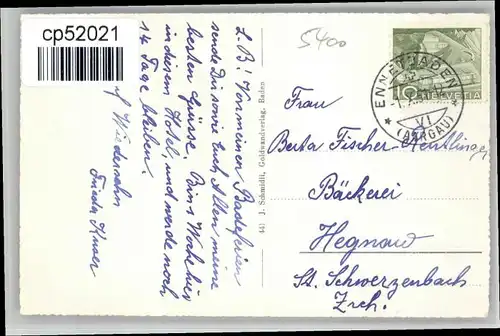 cp52021
5400
L. B! Von meinen Badeferien
sende Dir sowie Euch Allen meine
besten Grüsse. Bin 1 Woche hier
in diesem Hotel, und werde noch
14 Tage bleiben.
Auf Wiedersehn
Frieda
441 J. Schmidli, Goldwandverlag, Baden
10
HELVETIA
ENNETBADEN
VI
(AARGAU)
Frau
Berta Fischer-Meutlinger
Bäckerei
Hegnau
St. Schwerzenbach
Zrch.